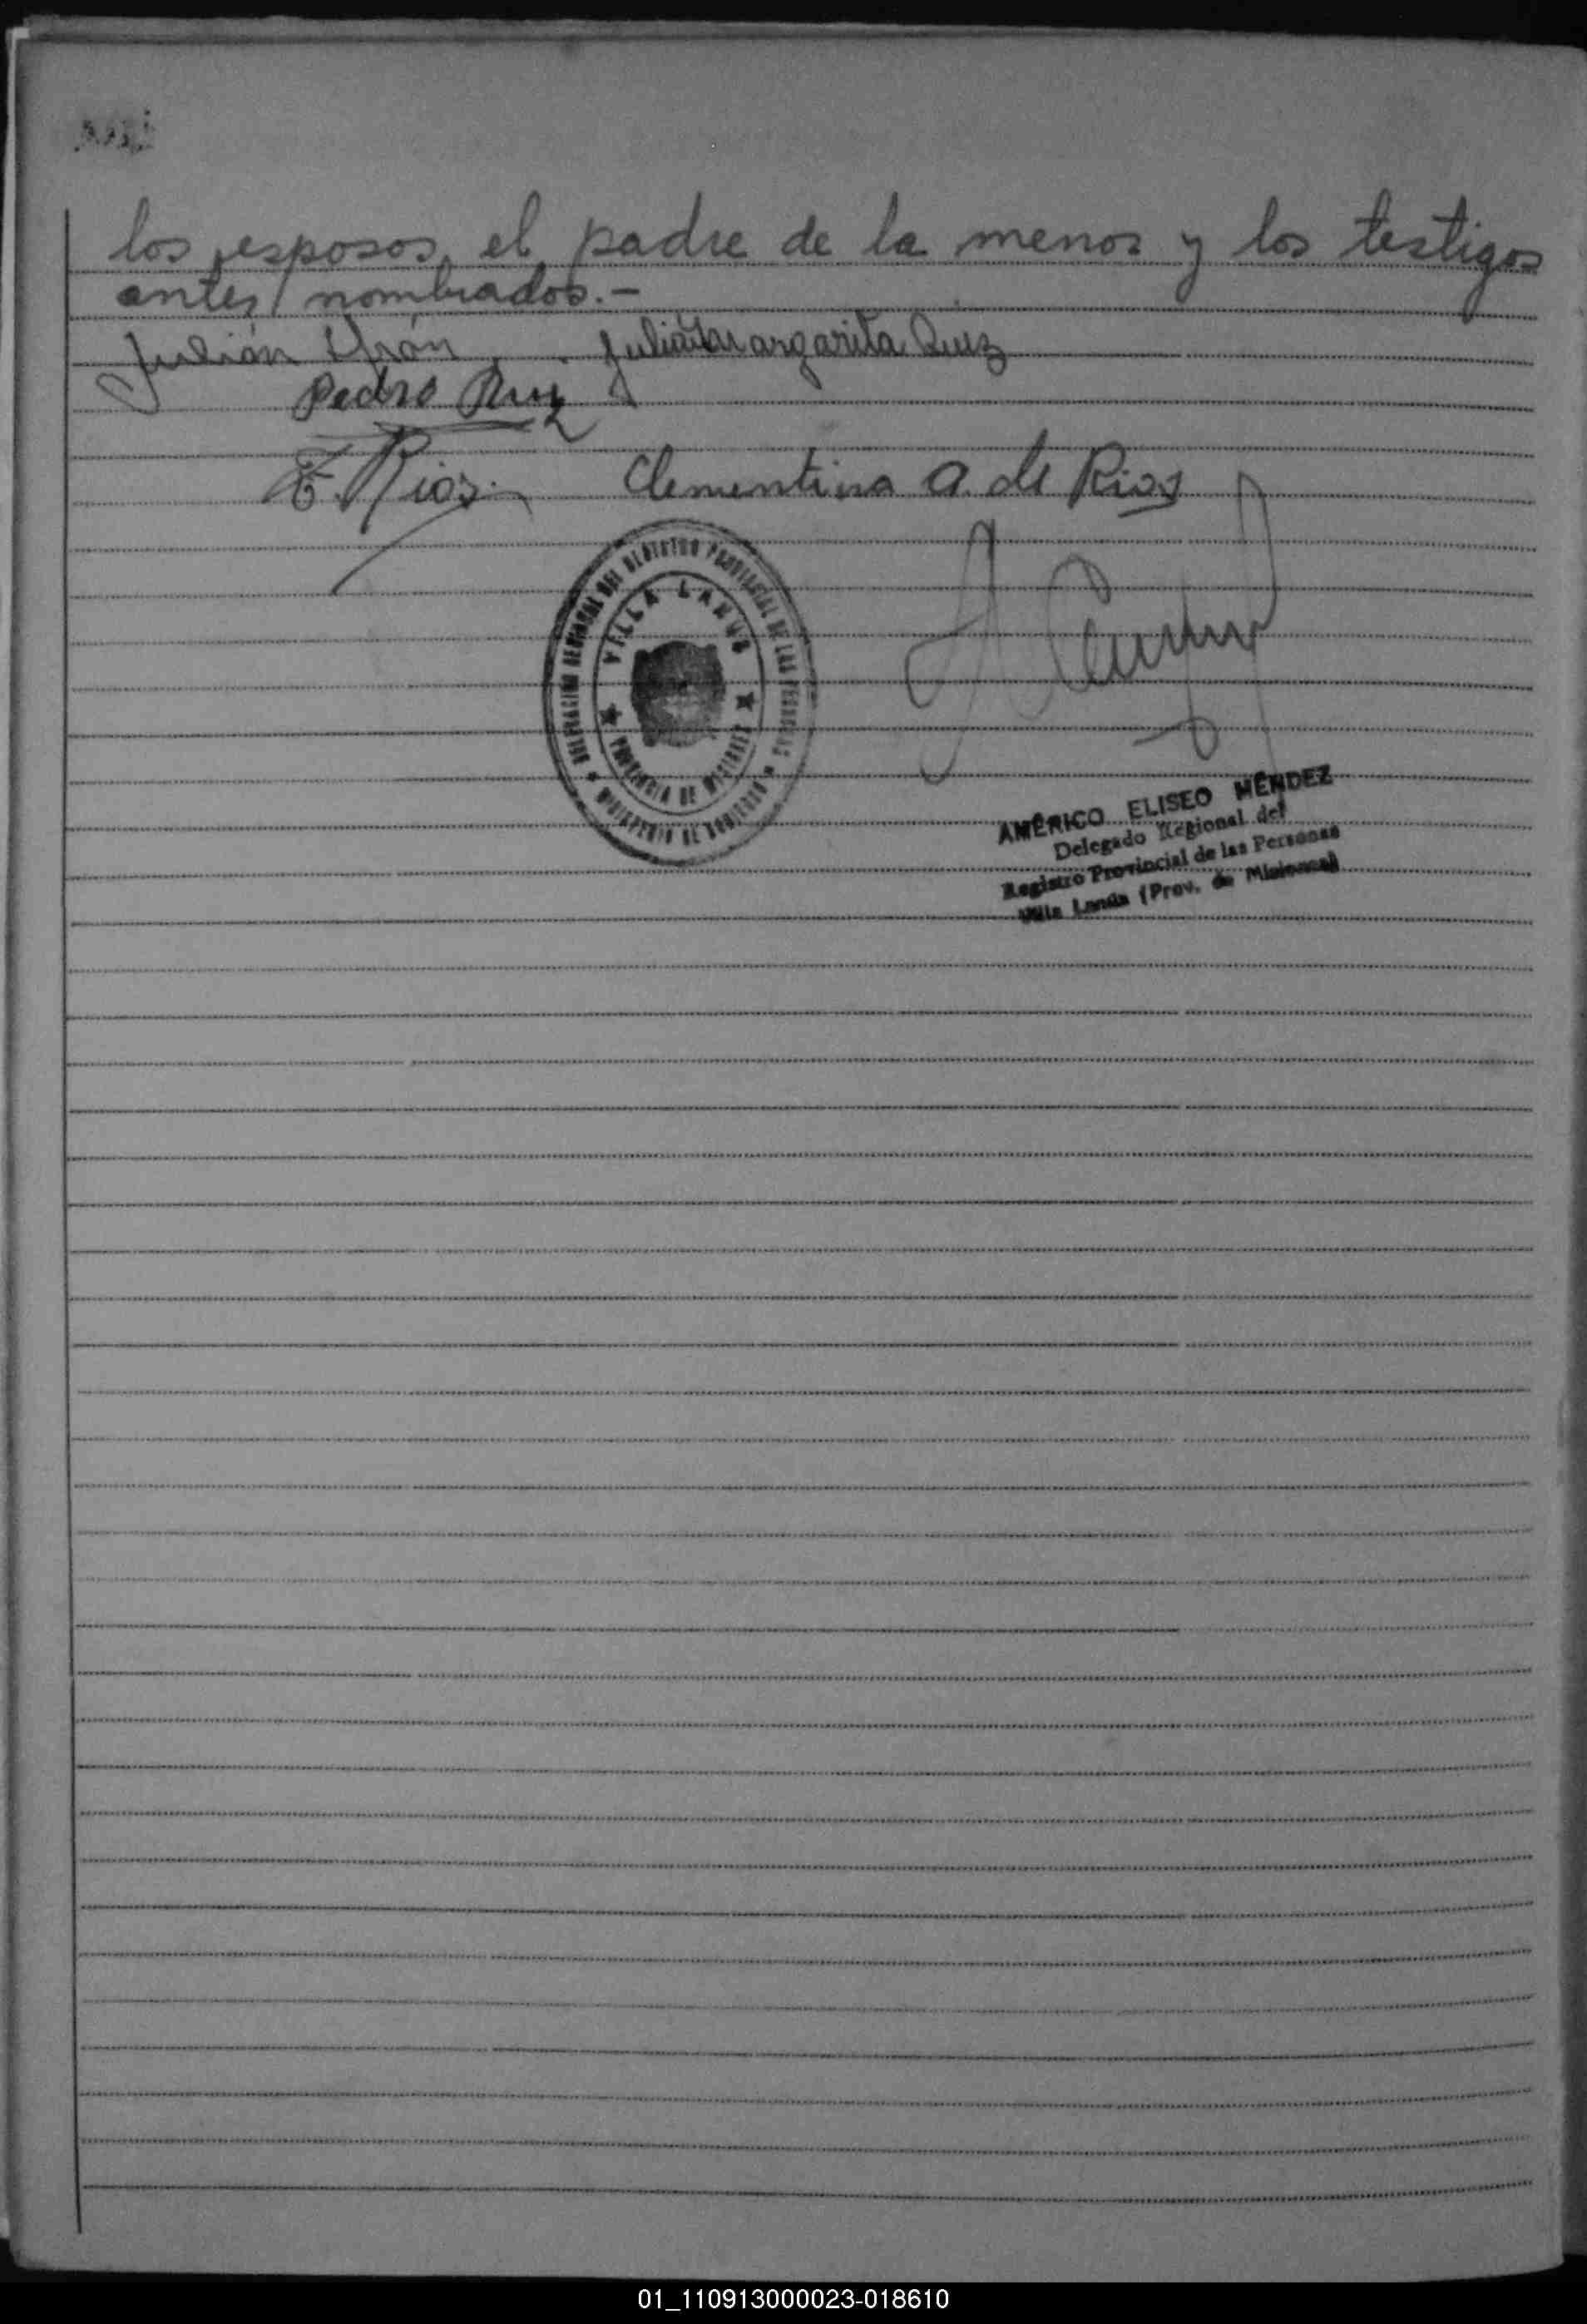 los esposos, el padre de la menor y los testigos
antes nombrados.-
Julián Julia Margarita Ruiz
Pedro Ruiz
E. Rios. Clementina A. de Rios
DEL REGISTRO PROVINCIAL DE LAS PERSONAS
VILLA LANUS
PROVINCIA DE MISIONES
MINISTERIO DE GOBIERNO
AMÉRICO ELISEO MÉNDEZ
Delegado Regional del
Registro Provincial de las Personas
Villa Lanús (Prov. de Misiones)
01_110913000023-018610